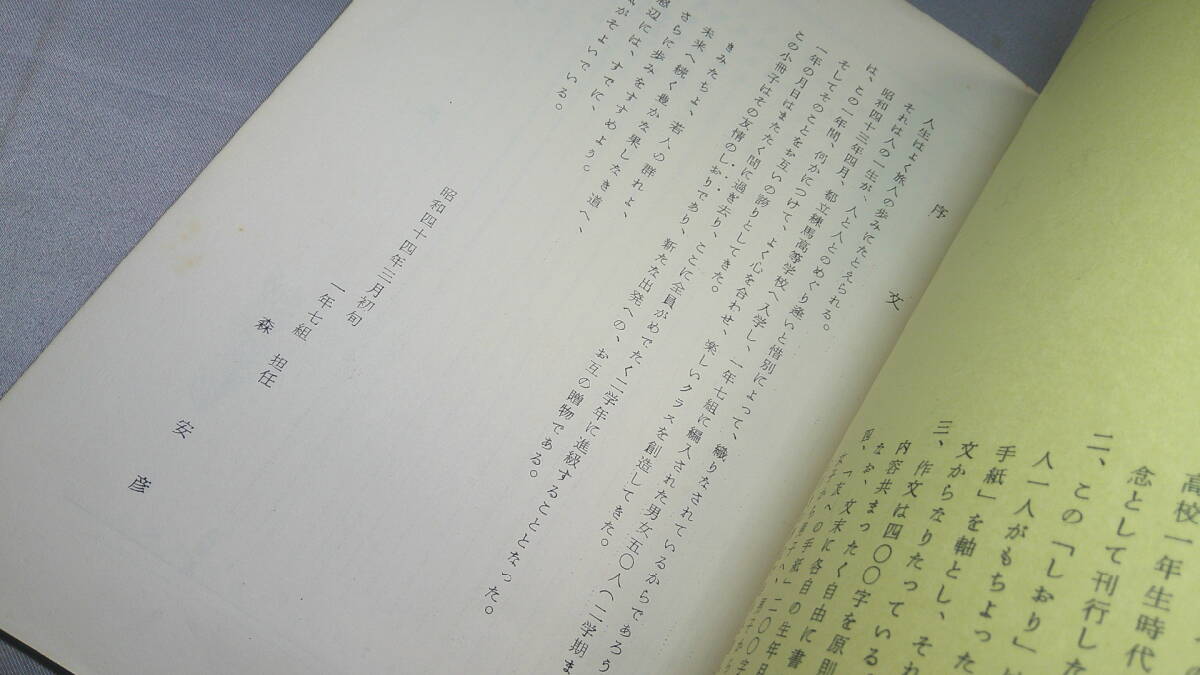 高校一年生時代
念として刊行した
二、この「しおり」は
人一人がもちよった
手紙」を軸とし、それ
文からなりたっている
三、作文は四〇〇字を原則
内容共まったく自由に書
序文
人生はよく旅人の歩みにたとえられる。
それは人の一生が、人と人とのめぐり逢いと惜別によって、織りなされているからであろう
は、昭和四十三年四月、都立練馬高等学校へ入学し、一年七組に編入された男女五〇人(二学期ま
この一年間、何かにつけて、よく心を合わせ、楽しいクラスを創造してきた。
そしてそのことをお互いの誇りとしてきた。
一年の月日はまたたく間に過ぎ去り、ここに全員がめでたく二学年に進級することとなった。
この小冊子はその友情のしおりであり、新たな出発への、お互の贈物である。
きみたちよ、若人の群れよ、
未来へ続く豊かな果しなき道へ、
さらに歩みをすすめよう。
辺には、すでに、
がそよいでいる。
昭和四十四年三月初旬
一年七組
担任
森安彦